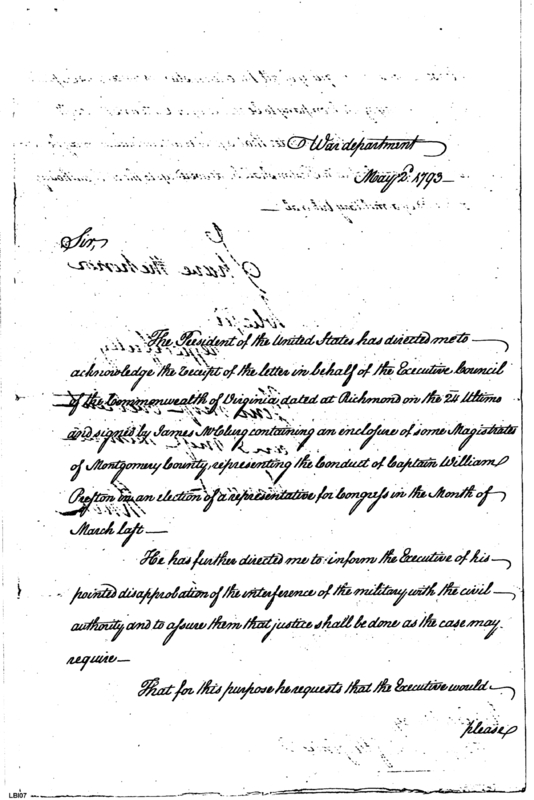 War department
May 2d. 1793
Sir,
The President of the United States has directed me to
acknowledge the receipt of the letter in behalf of the Executive Council
of the Commonwealth of Virginia, dated at Richmond on the 24 Ultimo
and signed by James McClurg containing an enclosure of some Magistrates
of Montgomery County, representing the Conduct of Captain William
Preston in an election of a representative for Congress in the Month of
March last
He has further directed me to inform the Executive of his
pointed disapprobation of the interference of the military with the civil
authority and to assure them that justice shall be done as the case may
require
That for this purpose he requests that the Executive would
please
LBI07